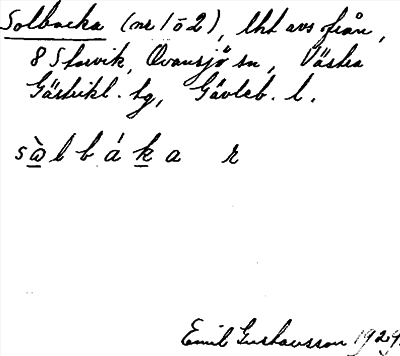 Solbacka (nr 1 o 2), lht avs från,
8 Storvik, Ovansjö sn, Västra
Gästrikl. tg, Gävleb. l.
sò̱lbáḵa r
Emil Gustavsson 1929.